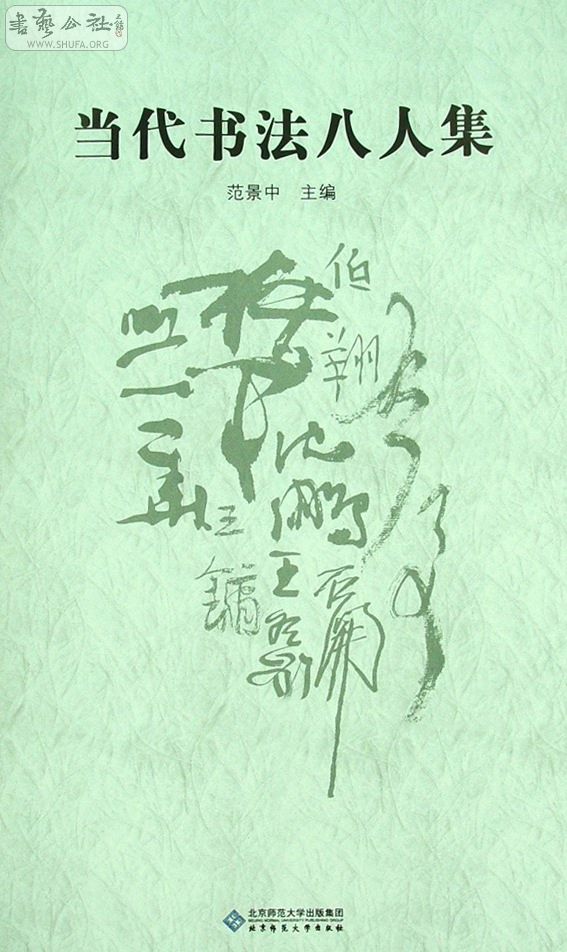 書藝公社
WWW.SHUFA.ORG
当代书法八人集
范景中 主编
伯翔
沈鹏
王镛
王冬龄
石开
北京师范大学出版集团
BEIJING NORMAL UNIVERSITY PUBLISHING GROUP
北京师范大学出版社